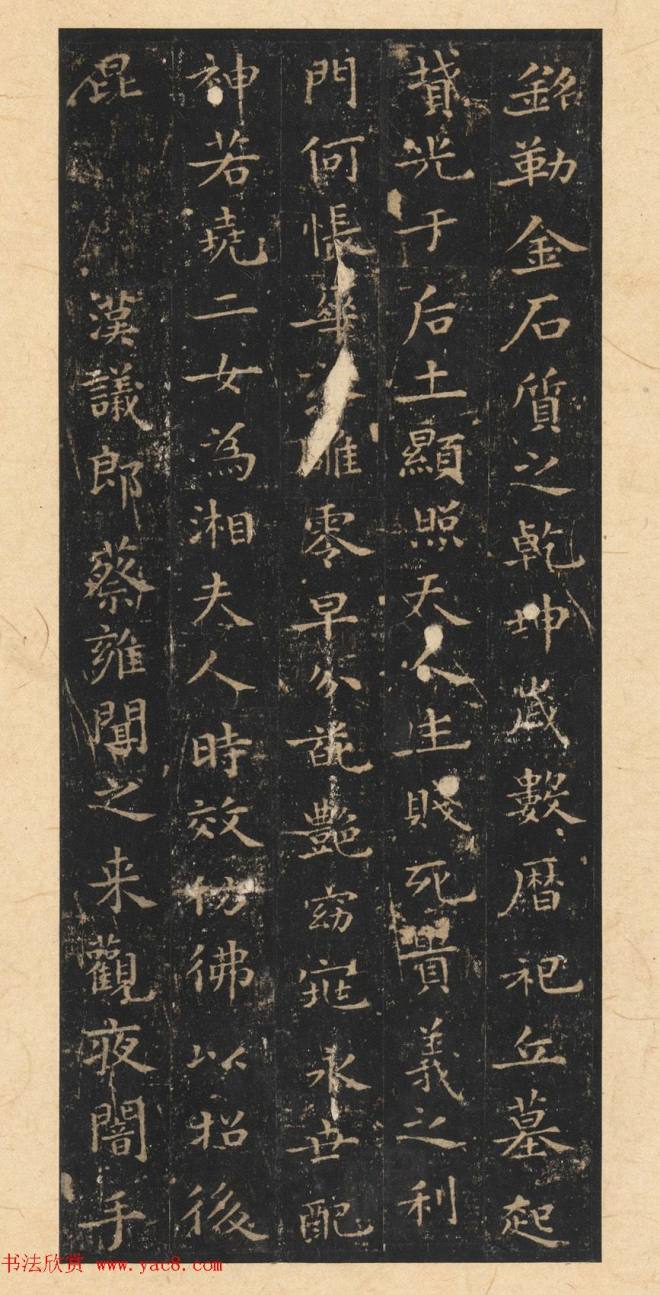 銘勒金石質之乾坤歲數曆祀丘墓起
墳光于后土顯照天人生賤死貴義之利
門何悵華落雕零早分葩艷窈窕永世配
神若堯二女為湘夫人時效仿佛以招後
昆 漢議郎蔡雍聞之来觀夜闇手
书法欣赏 www.yac8.com